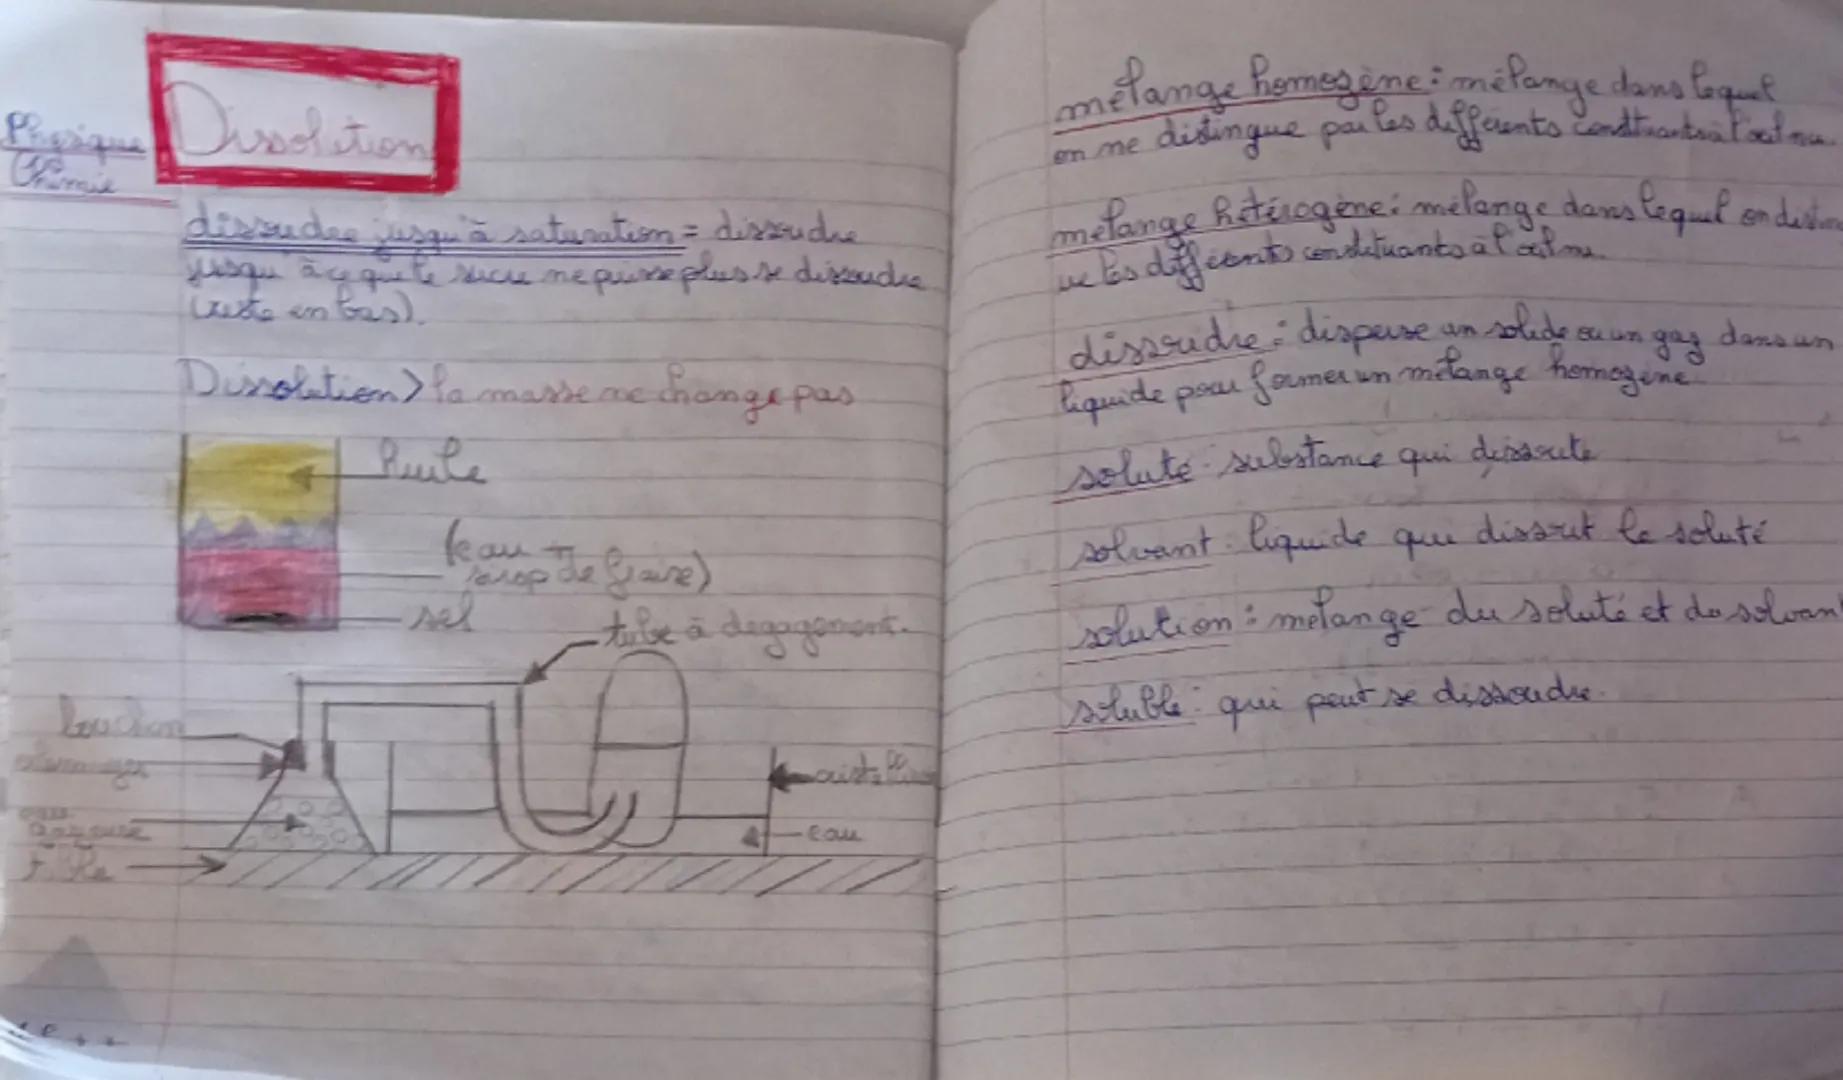 Physique
Chimie
Dissolution
dissoudre jusqu'à saturation = dissoudre
jusqu'à ce que le sucre ne puisse plus se dissoudre
(reste en bas).
Dissolution > la masse ne change pas
huile
(eau +
sirop de fraise)
sel
tube à degagement.
bouchon
eau
gazeuse
eau
mélange homogène : mélange dans lequel
on ne distingue pas les différents constituants à l'œil nu.
mélange hétérogène : mélange dans lequel on distin
ue les différents constituants à l'œil nu.
dissoudre : disperse un solide ou un gaz dans un
liquide pour former un mélange homogène.
soluté : substance qui dissoute
solvant : liquide qui dissout le soluté
solution : mélange du soluté et du solvant
soluble : qui peut se dissoudre.